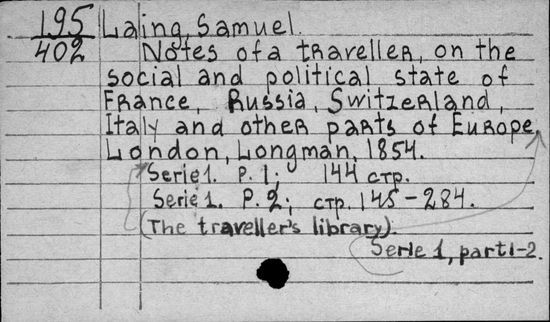 195
402
Laing, Samuel.
Notes of a traveller, on the
social and political state of
France, Russia, Switzerland,
Italy and other parts of Europe,
London, Longman, 1854.
Serie 1. P. 1; 144 стр.
Serie 1. P. 2; стр. 145-284.
(The traveller's library).
Serie 1, part 1-2.